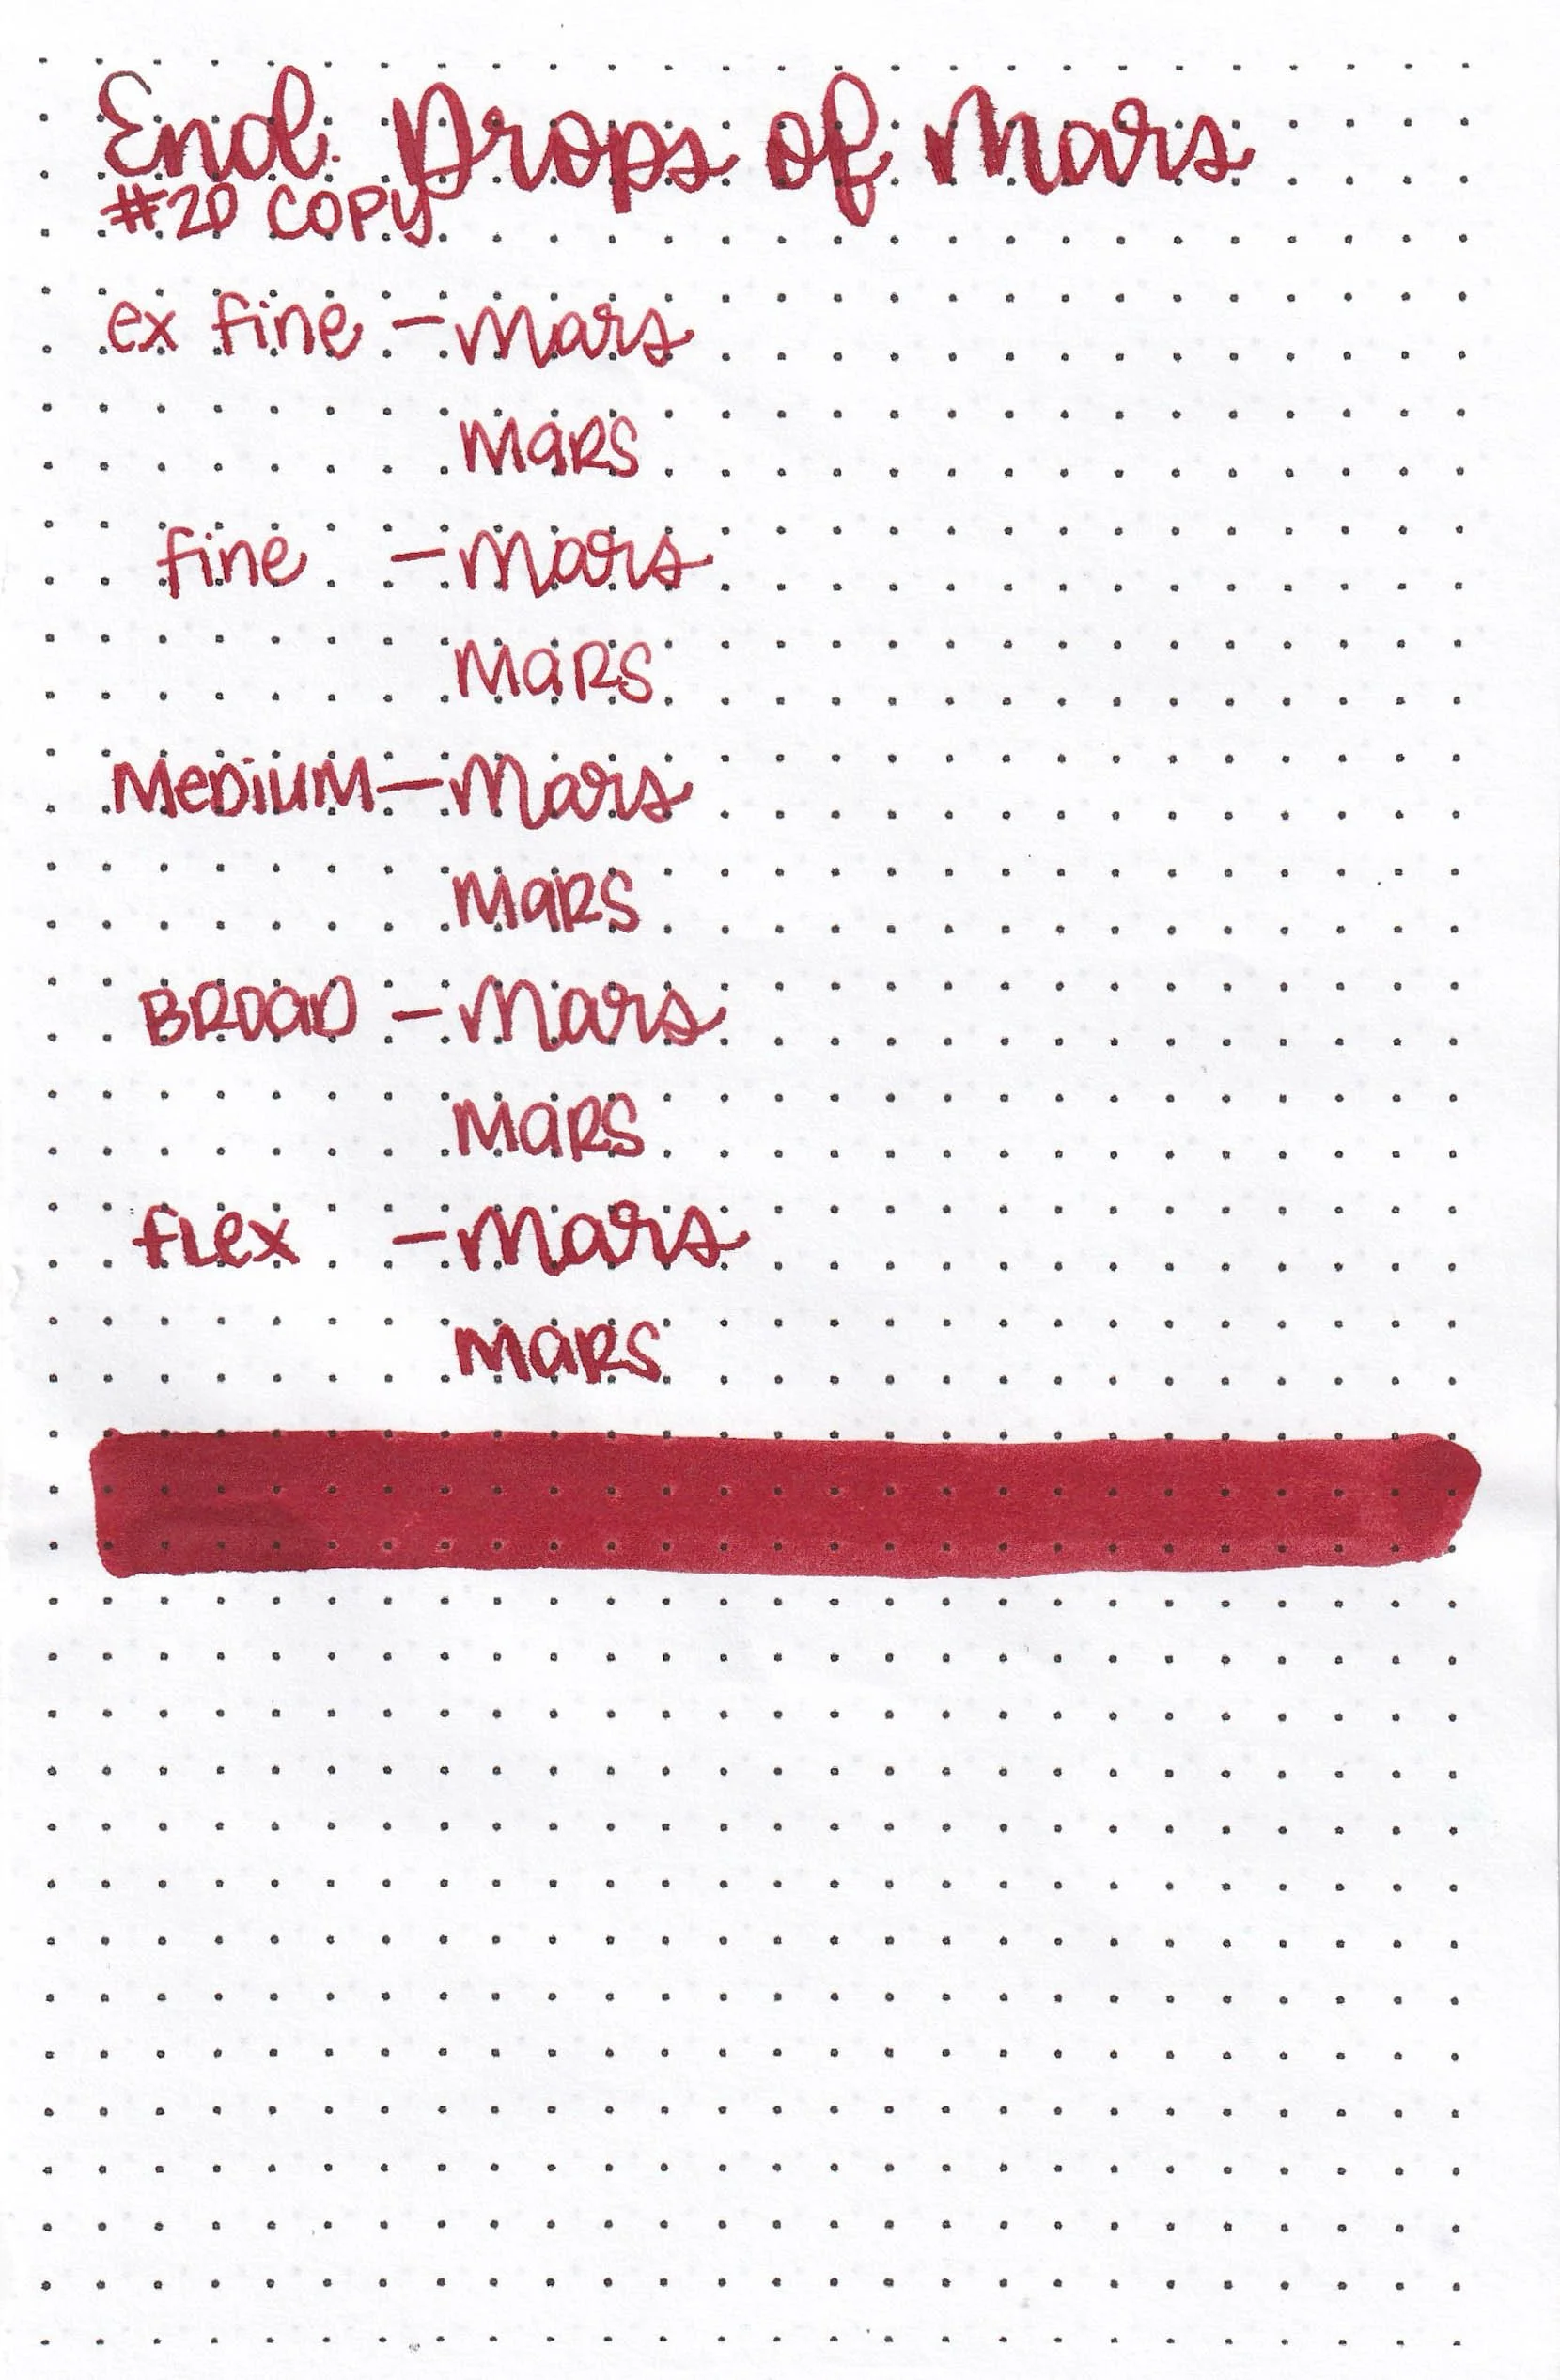 End. Drops of Mars
#20 COPY
ex fine - Mars
MARS
fine - Mars
MARS
MEDIUM - Mars
MARS
BROAD - Mars
MARS
fLex - Mars
MARS